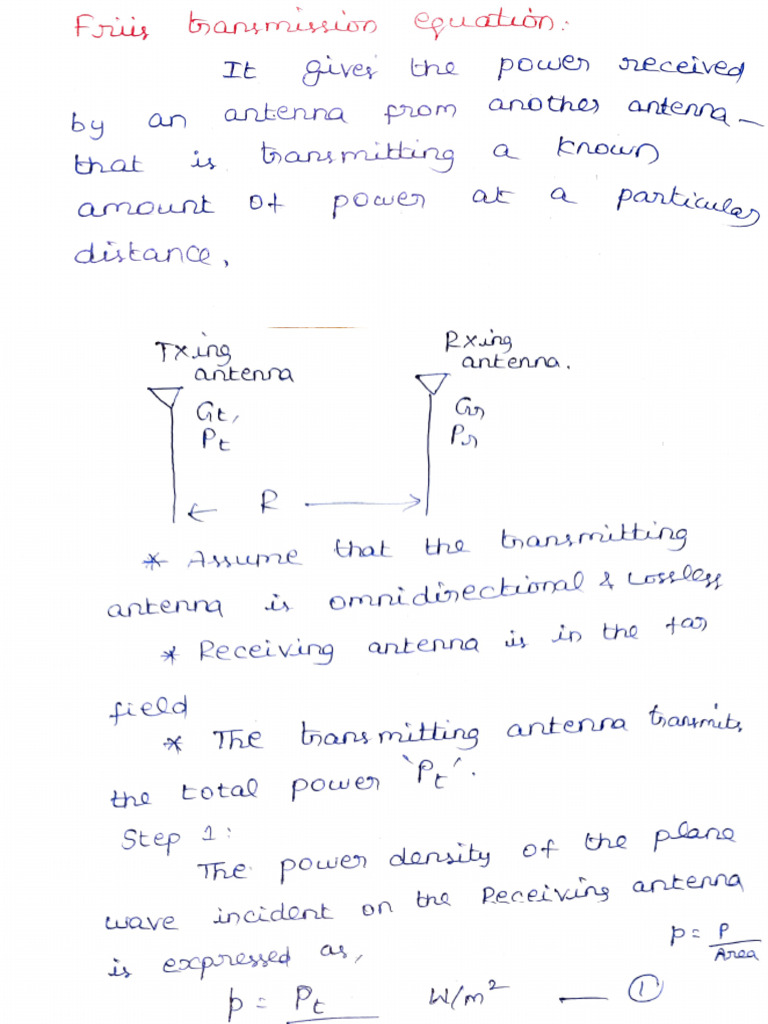 Friis transmission equation:
It gives the power received
by an antenna from another antenna
that is transmitting a known
amount of power at a particular
distance,
Txing
antenna
Gt,
Pt
Rxing
antenna.
Gr
Pr
← R →
* Assume that the transmitting
antenna is omnidirectional & lossless
* Receiving antenna is in the far
field
* The transmitting antenna transmits
the total power 'Pt'.
Step 1:
The power density of the plane
wave incident on the Receiving antenna
is expressed as,
p = P / Area
p = Pt W/m² — ①